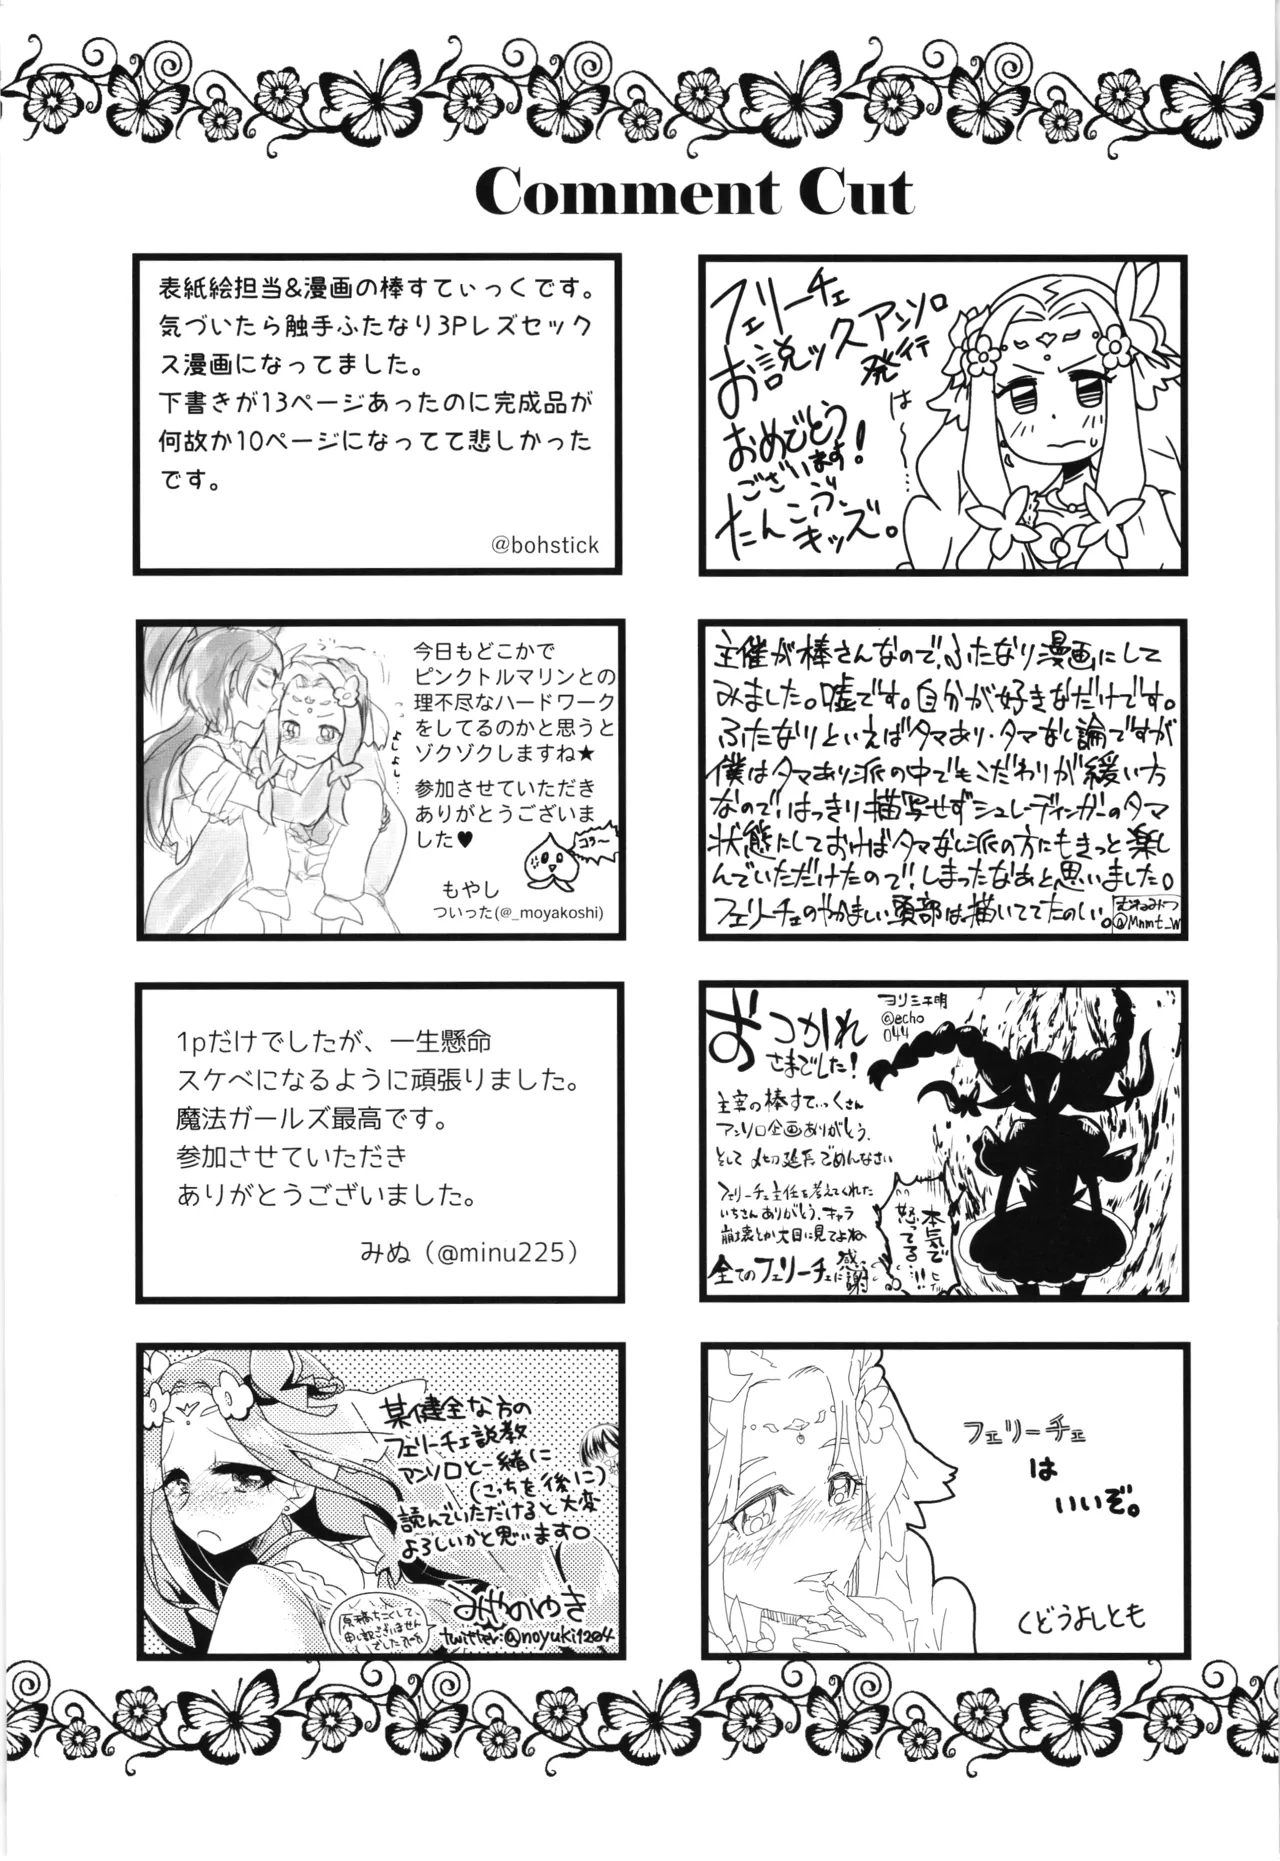 Comment Cut
表紙絵担当&漫画の棒すてぃっくです。
気づいたら触手ふたなり3Pレズセック
ス漫画になってました。
下書きが13ページあったのに完成品が
何故か10ページになってて悲しかった
です。
@bohstick
フェリーチェ
お説ックスアンソロ
発行
おめでとう
ございます!
たんこぶ
キッズ。
は〜…
今日もどこかで
ピンクトルマリンとの
理不尽なハードワーク
をしてるのかと思うと
ゾクゾクしますね★
参加させていただき
ありがとうございま
した♥
よしよし…
コラ〜
もやし
ついった(@_moyakoshi)
主催が棒さんなので、ふたなり漫画にして
みました。嘘です。自分が好きなだけです。
ふたなりといえばタマあり・タマなし論ですが
僕はタマあり派の中でもこだわりが緩い方
なので、はっきり描写せずシュレーディンガーのタマ
状態にしておけばタマなし派の方にもきっと楽し
んでいただけたので!しまったなぁと思いました。
フェリーチェのやかましい頭部は描いててたのしい。
むねみつ
@Mnmt_W
1pだけでしたが、一生懸命
スケベになるように頑張りました。
魔法ガールズ最高です。
参加させていただき
ありがとうございました。
みぬ（@minu225）
おつかれ
さまでした!
ヨリ三千明
@echo
044
主宰の棒すてぃっくさん
アンソロ企画ありがとう、
そして〆切延長ごめんなさい
フェリーチェ主任を考えてくれた
いちさんありがとう、キャラ
崩壊とか大目に見てよね
全てのフェリーチェに感謝
本気で
怒ってる…!!!
某健全な方の
フェリーチェ説教
アンソロと一緒に
(こっちを後に)
読んでいただけると大変
よろしいかと思います。
みやのゆき
twitter:@noyuki1204
原稿ちこくして、
申し訳ございません
でした
フェリーチェ
は
いいぞ。
くどうよしとも